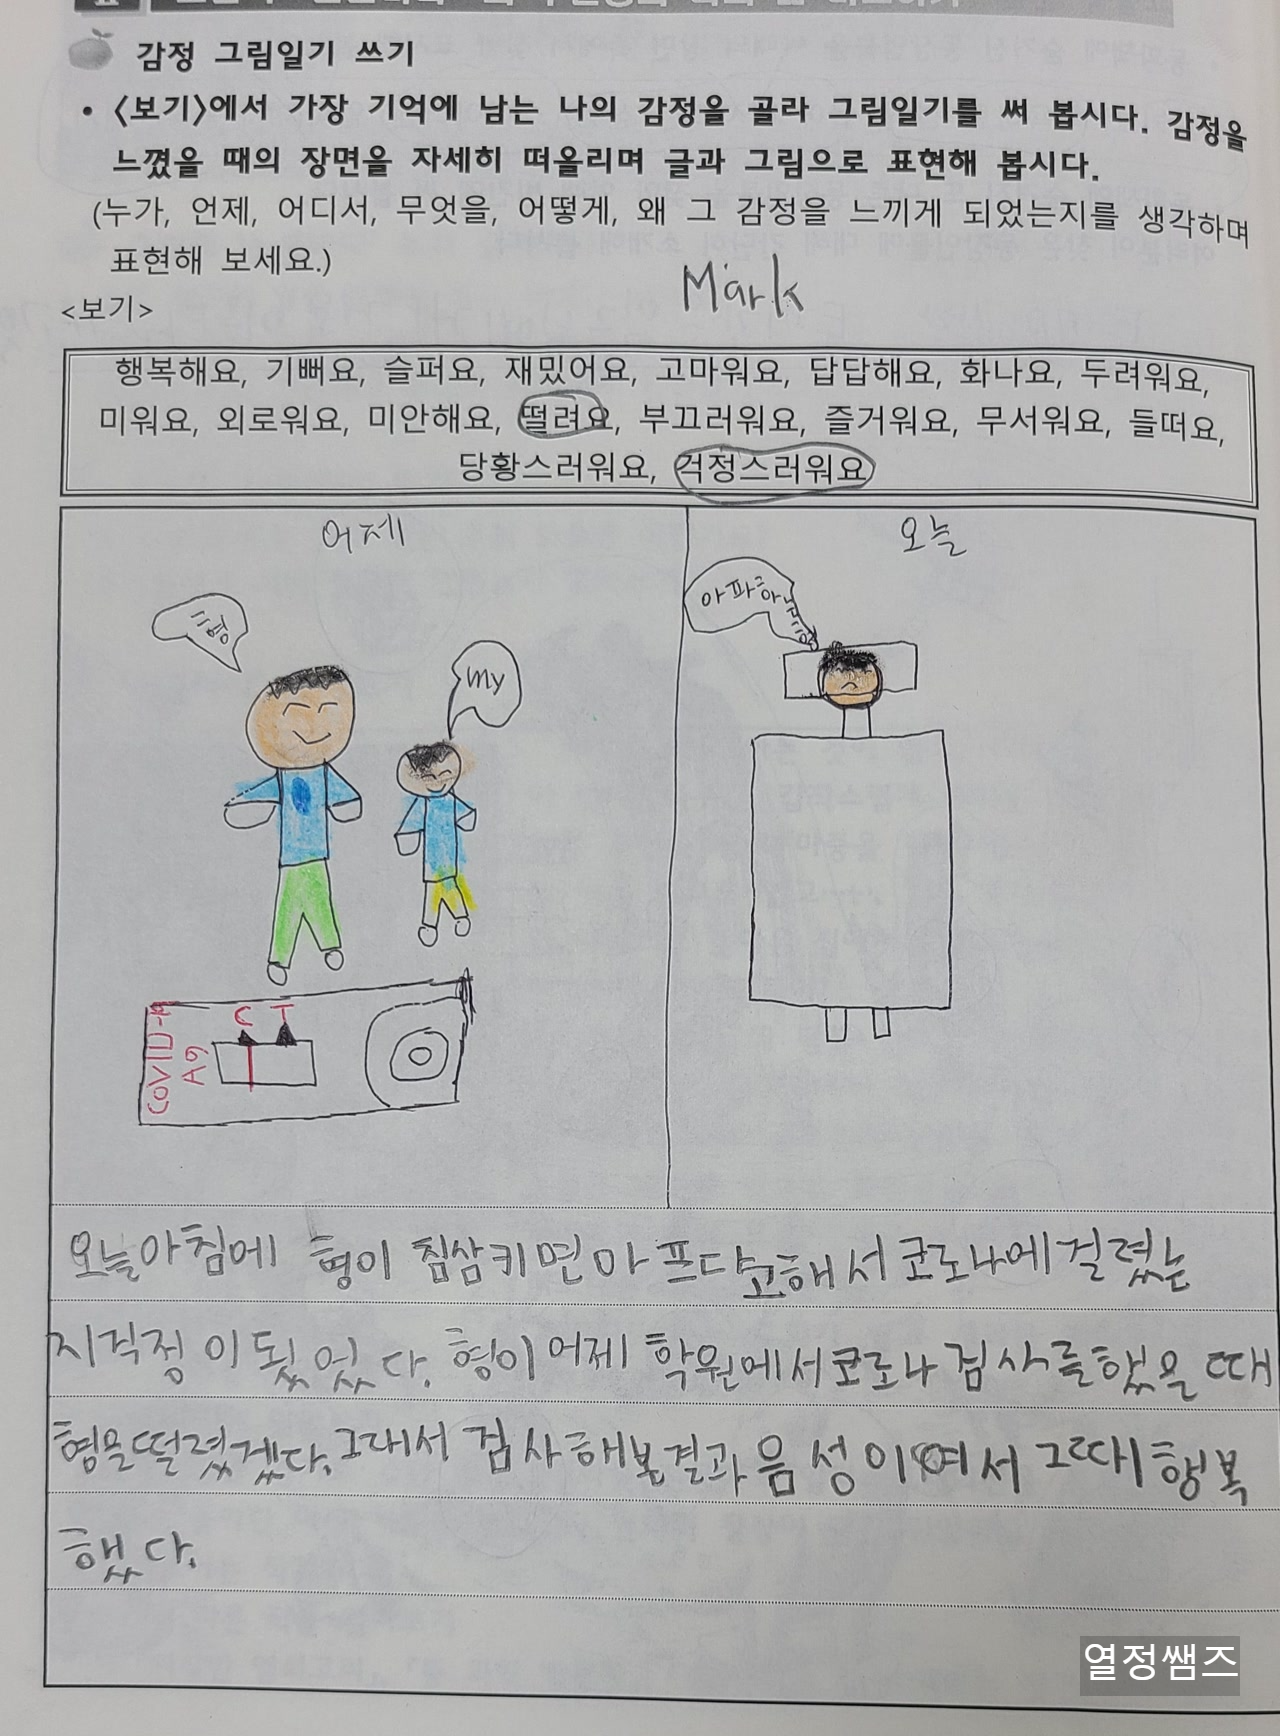 감정 그림일기 쓰기
• <보기>에서 가장 기억에 남는 나의 감정을 골라 그림일기를 써 봅시다. 감정을
느꼈을 때의 장면을 자세히 떠올리며 글과 그림으로 표현해 봅시다.
(누가, 언제, 어디서, 무엇을, 어떻게, 왜 그 감정을 느끼게 되었는지를 생각하며
표현해 보세요.)
Mark
<보기>
행복해요, 기뻐요, 슬퍼요, 재밌어요, 고마워요, 답답해요, 화나요, 두려워요,
미워요, 외로워요, 미안해요, 떨려요, 부끄러워요, 즐거워요, 무서워요, 들떠요,
당황스러워요, 걱정스러워요
어제
오늘
형
my
아파하
COVID-19
Ag
C T
오늘아침에 형이 침삼키면아프다고해서코로나에걸렸는
지걱정이됬었다. 형이어제 학원에서코로나검사를했을때
형은떨렸겠다. 그래서 검사해본결과음성이여서 그때행복
했다.
열정쌤즈